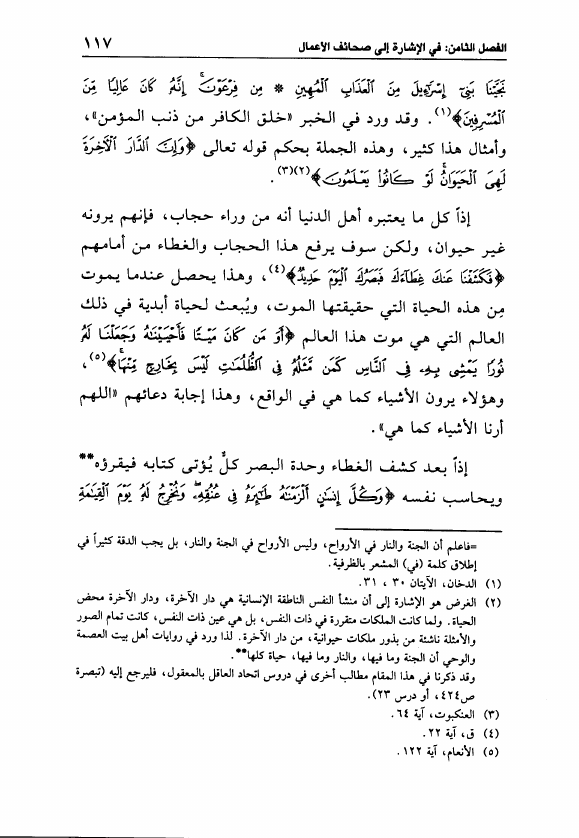 الفصل الثامن: في الإشارة إلى صحائف الأعمال ١١٧
نَجَّيْنَا بَنِي إِسْرَائِيلَ مِنَ الْعَذَابِ الْمُهِينِ * مِن فِرْعَوْنَ إِنَّهُ كَانَ عَالِيًا مِّنَ
الْمُسْرِفِينَ﴾(١). وقد ورد في الخبر «خلق الكافر من ذنب المؤمن»،
وأمثال هذا كثير، وهذه الجملة بحكم قوله تعالى ﴿وَإِنَّ الدَّارَ الْآخِرَةَ
لَهِيَ الْحَيَوَانُ لَوْ كَانُوا يَعْلَمُونَ﴾(٢)(٣).
إذاً كل ما يعتبره أهل الدنيا أنه من وراء حجاب، فإنهم يرونه
غير حيوان، ولكن سوف يرفع هذا الحجاب والغطاء من أمامهم
﴿فَكَشَفْنَا عَنكَ غِطَاءَكَ فَبَصَرُكَ الْيَوْمَ حَدِيدٌ﴾(٤)، وهذا يحصل عندما يموت
مِن هذه الحياة التي حقيقتها الموت، ويُبعث لحياة أبدية في ذلك
العالم التي هي موت هذا العالم ﴿أَوَ مَن كَانَ مَيْتًا فَأَحْيَيْنَاهُ وَجَعَلْنَا لَهُ
نُورًا يَمْشِي بِهِ فِي النَّاسِ كَمَن مَّثَلُهُ فِي الظُّلُمَاتِ لَيْسَ بِخَارِجٍ مِّنْهَا﴾(٥)،
وهؤلاء يرون الأشياء كما هي في الواقع، وهذا إجابة دعائهم «اللهم
أرنا الأشياء كما هي».
إذاً بعد كشف الغطاء وحدة البصر كلٌّ يُؤتى كتابه فيقرؤه**
ويحاسب نفسه ﴿وَكُلَّ إِنسَانٍ أَلْزَمْنَاهُ طَائِرَهُ فِي عُنُقِهِ وَنُخْرِجُ لَهُ يَوْمَ الْقِيَامَةِ
=فاعلم أن الجنة والنار في الأرواح، وليس الأرواح في الجنة والنار، بل يجب الدقة كثيراً في
إطلاق كلمة (في) المشعر بالظرفية.
(١) الدخان، الآيتان ٣٠ ، ٣١.
(٢) الغرض هو الإشارة إلى أن منشأ النفس الناطقة الإنسانية هي دار الآخرة، ودار الآخرة محض
الحياة. ولما كانت الملكات متقررة في ذات النفس، بل هي عين ذات النفس، كانت تمام الصور
والأمثلة ناشئة من بذور ملكات حيوانية، من دار الآخرة. لذا ورد في روايات أهل بيت العصمة
والوحي أن الجنة وما فيها، والنار وما فيها، حياة كلها**.
وقد ذكرنا في هذا المقام مطالب أخرى في دروس اتحاد العاقل بالمعقول، فليرجع إليه (تبصرة
ص٤٢٤، أو درس ٢٣).
(٣) العنكبوت، آية ٦٤.
(٤) ق، آية ٢٢.
(٥) الأنعام، آية ١٢٢.